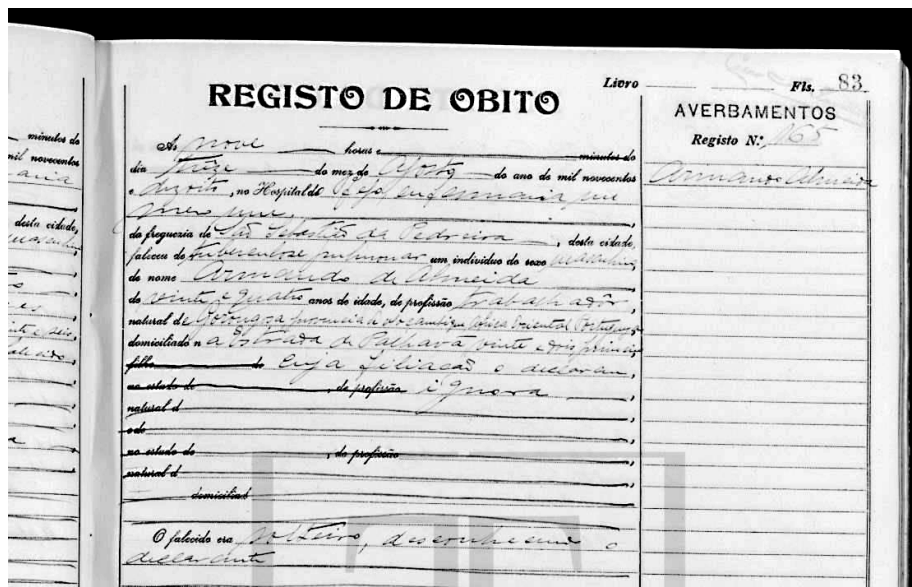 Livro
Fls. 83
REGISTO DE OBITO
AVERBAMENTOS
Registo N.º 1165
Armando Almeida
Ás nove horas e minutos do
dia treze do mez de Agosto do ano de mil novecentos
e dezoito, no Hospital do Rego, enfermaria nu
mero um,
da freguezia de São Sebastião da Pedreira, desta cidade,
faleceu de tuberculose pulmonar um individuo do sexo masculino
de nome Armando de Almeida
de vinte e quatro anos de idade, de profissão trabalhador,
natural de provincia de Moçambique Africa Oriental Portuguesa
domiciliado na Estrada de Palhavã vinte e
filho de cuja filiação o declaran,
no estado de , de profissão ignora ,
natural d
e de
no estado de , de profissão ,
natural d
domiciliad
O falecido era solteiro, desconhecendo o
declarante
minutos do
mil novecentos
desta cidade,